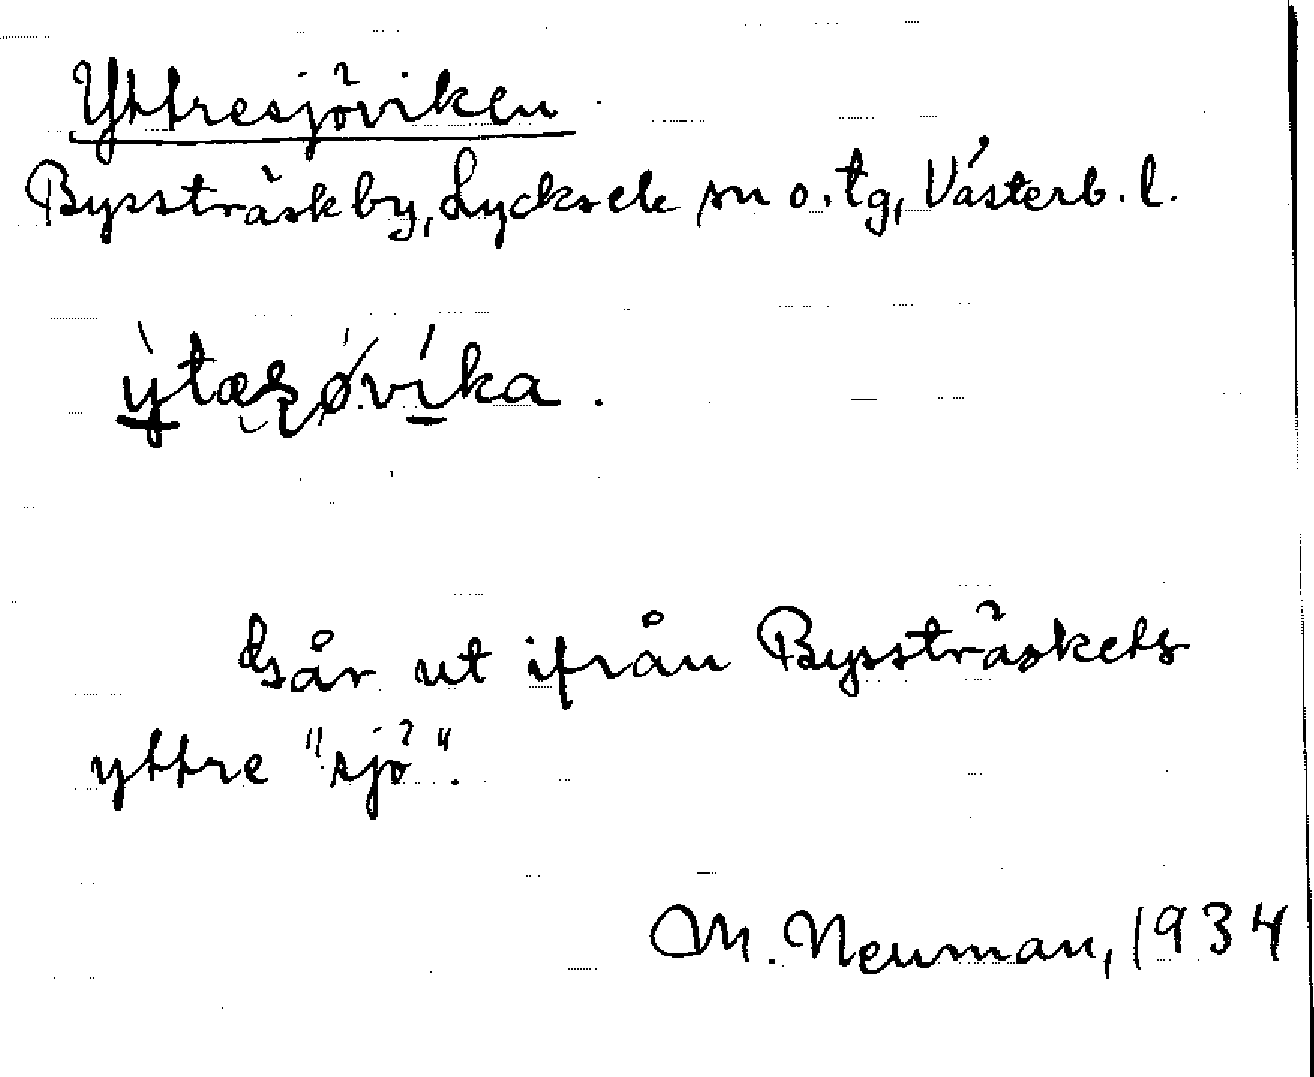 Yttresjöviken
Bysstråskby, Lycksele sn o. tg, Västerb. l.
ỳtæʂøvíka.
Går ut ifrån Bysstråskets
yttre "sjö".
M. Neuman, 1934